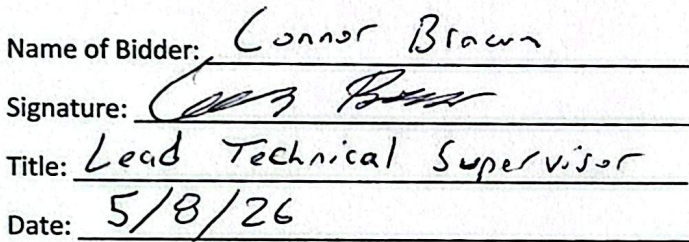 Name of Bidder: Connor Brown
Signature:
Title: Lead Technical Supervisor
Date: 5/8/26